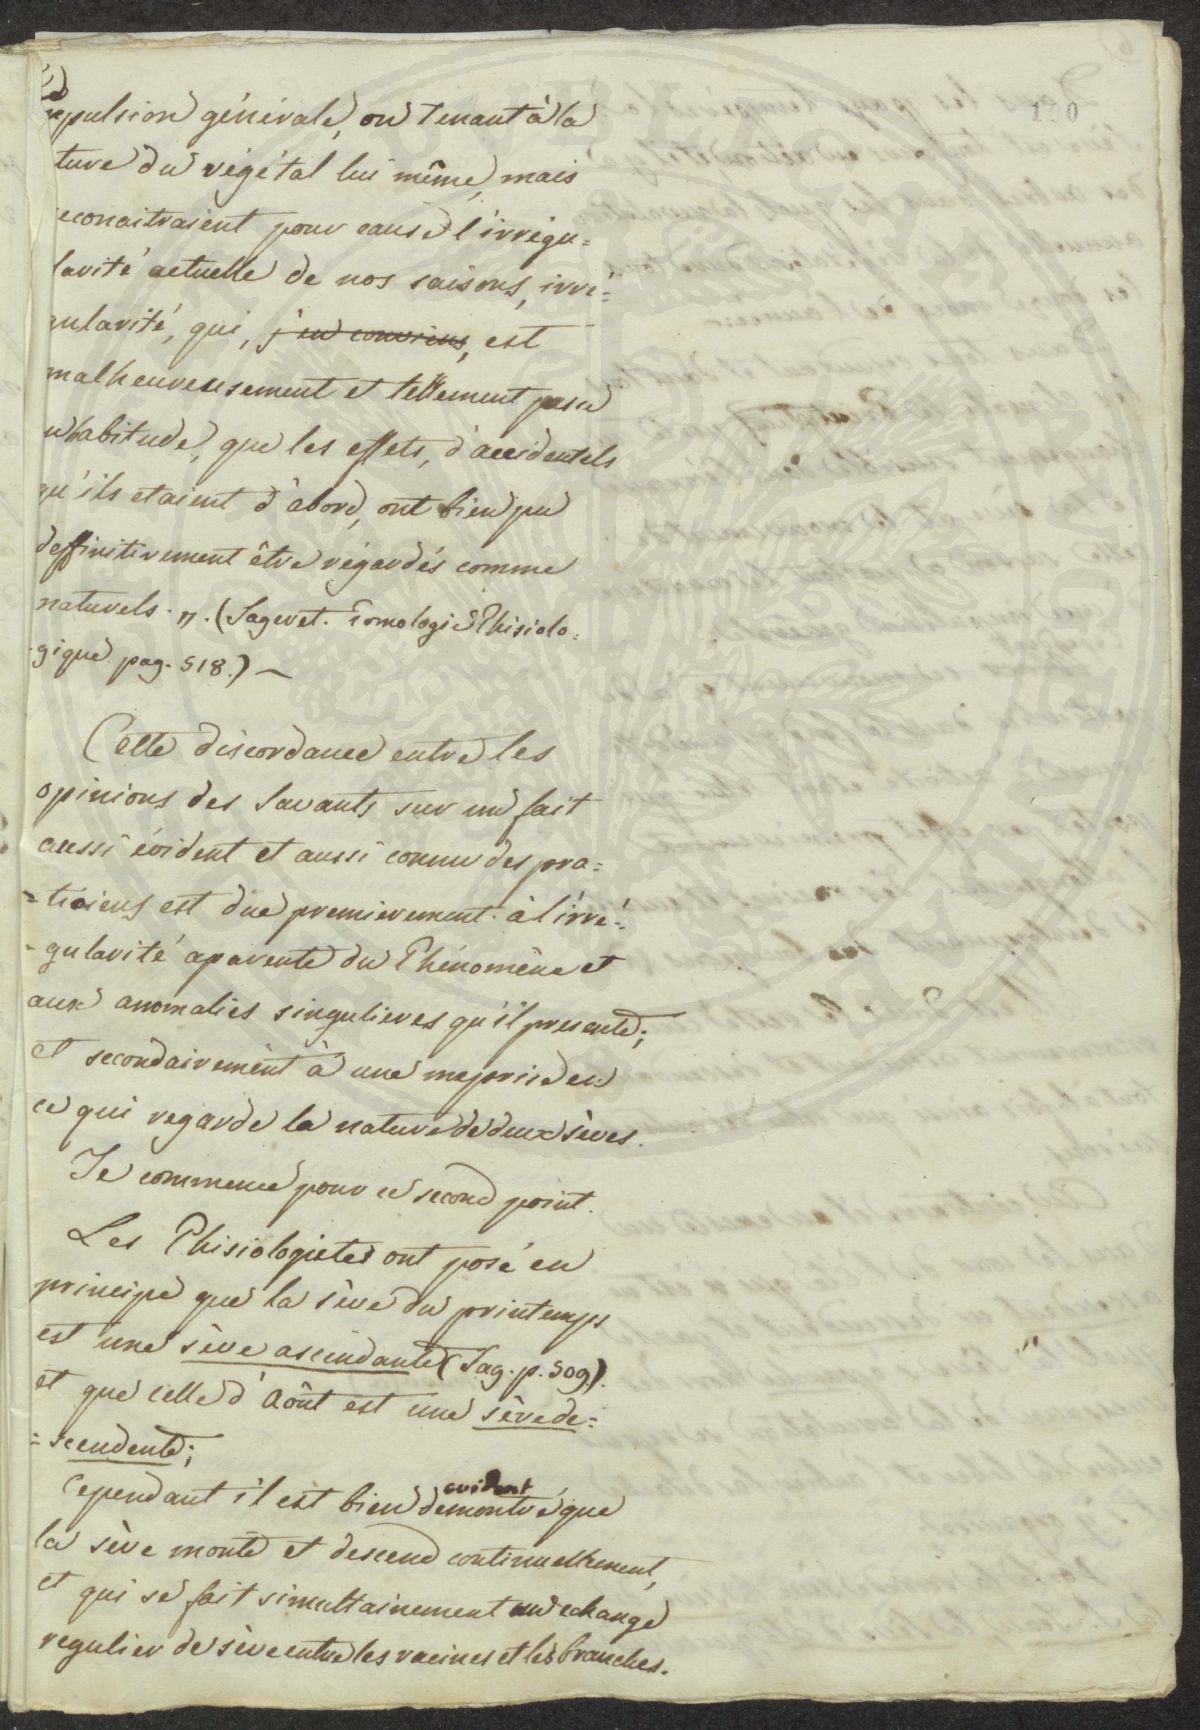 100
pulsion générale, ou tenant à la
ture du végétal lui même, mais
econaitraient pour cause l'irrégu=
larité actuelle de nos saisons, irré=
gularité, qui, j'en conviens, est
malheureusement et tellement passé
habitude, que les effets, d'accidentels
qu'ils etaient d'abord, ont bien pu
deffinitivement être régardés comme
naturels. ". (Sageret. Pomologie Phisiolo=
gique pag. 518.) —
Cette discordance entre les
opinions des Savants sur un fait
aussi évident et aussi connu des pra=
=ticiens est due premierement à l'irré=
=gularité aparente du Phénomène et
aux anomalies singulieres qu'il presente;
et secondairement à une meprise en
ce qui regarde la nature de deux sèves.
Je commence pour ce second point.
Les Phisiologistes ont posé en
principe que la sève du printemps
est une sève ascendante (Sag. p. 509).
et que celle d'Août est une sève de=
=scendente;
evident
Cependant il est bien demontré que
la sève monte et descend continuellement,
et qui se fait simultainement un echange
regulier de sève entre les racines et les branches.